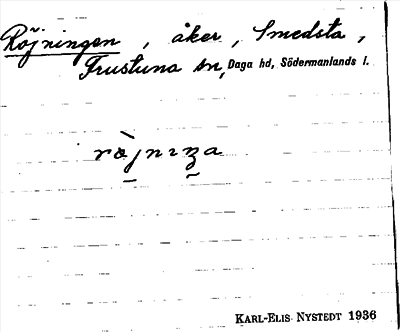 Röjningen, åker, Smedsta,
Frustuna sn, Daga hd, Södermanlands l.
KARL-ELIS NYSTEDT 1936